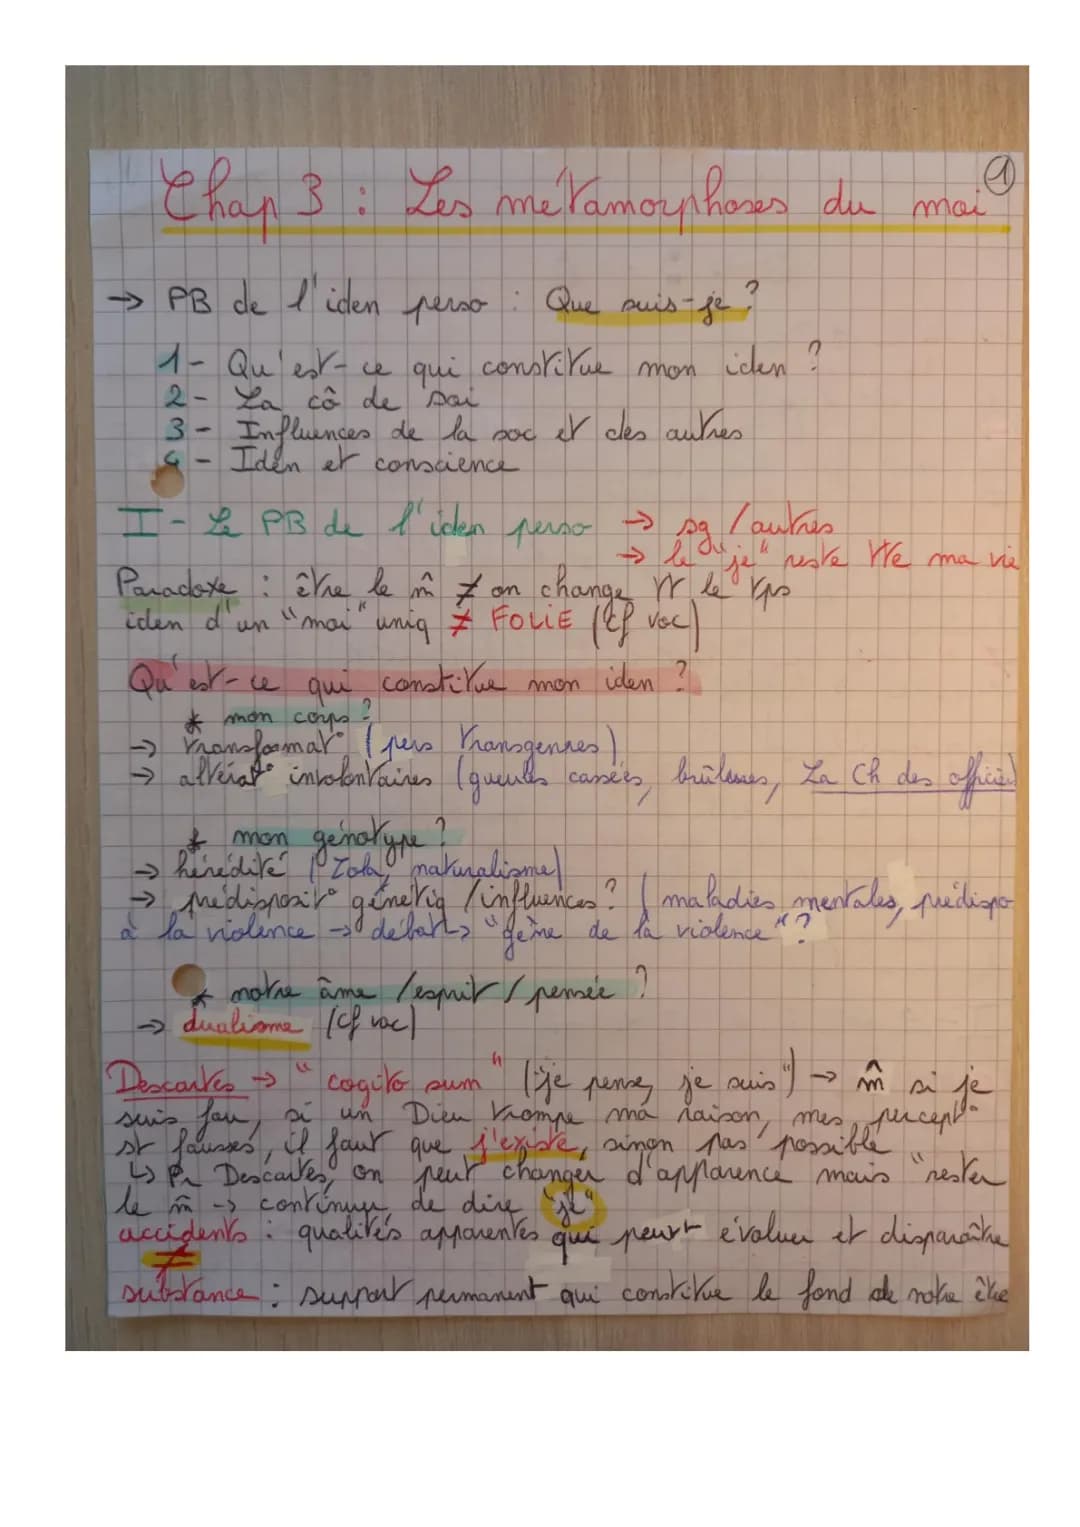 ①
Chap 3 : Les métamorphoses du moi
→ PB de l'iden perso : Que suis-je ?
1- Qu'est-ce qui constitue mon iden ?
2- La cô de soi
3- Influences de la soc et des autres
4- Iden et conscience
I- Le PB de l'iden perso → sg / autres
→ le "je" reste tte ma vie
Paradoxe : être le m̂ ≠ on change tt le tps
iden d'un "moi" uniq ≠ FOLIE (cf voc)
Qu'est-ce qui constitue mon iden ?
* mon corps ?
→ transformat° (pers transgenres)
→ altérat° involontaires (gueules cassées, brûlures, La Ch des officiers)
* mon génotype ?
→ hérédité (Zola, naturalisme)
→ prédisposit° génétiq / influences ? (maladies mentales, prédispo
à la violence → débat → "gène de la violence" ?
* notre âme / esprit / pensée ?
→ dualisme (cf voc)
Descartes → "cogito sum" ("je pense, je suis") → m̂ si je
suis fou, si un Dieu trompe ma raison, mes percept°
st fausses, il faut que j'existe, sinon pas possible
↳ Pr Descartes, on peut changer d'apparence mais "rester
le m̂ → continuer de dire "je"
accidents : qualités apparentes qui peuvt évoluer et disparaître
≠
substance : support permanent qui constitue le fond de notre être